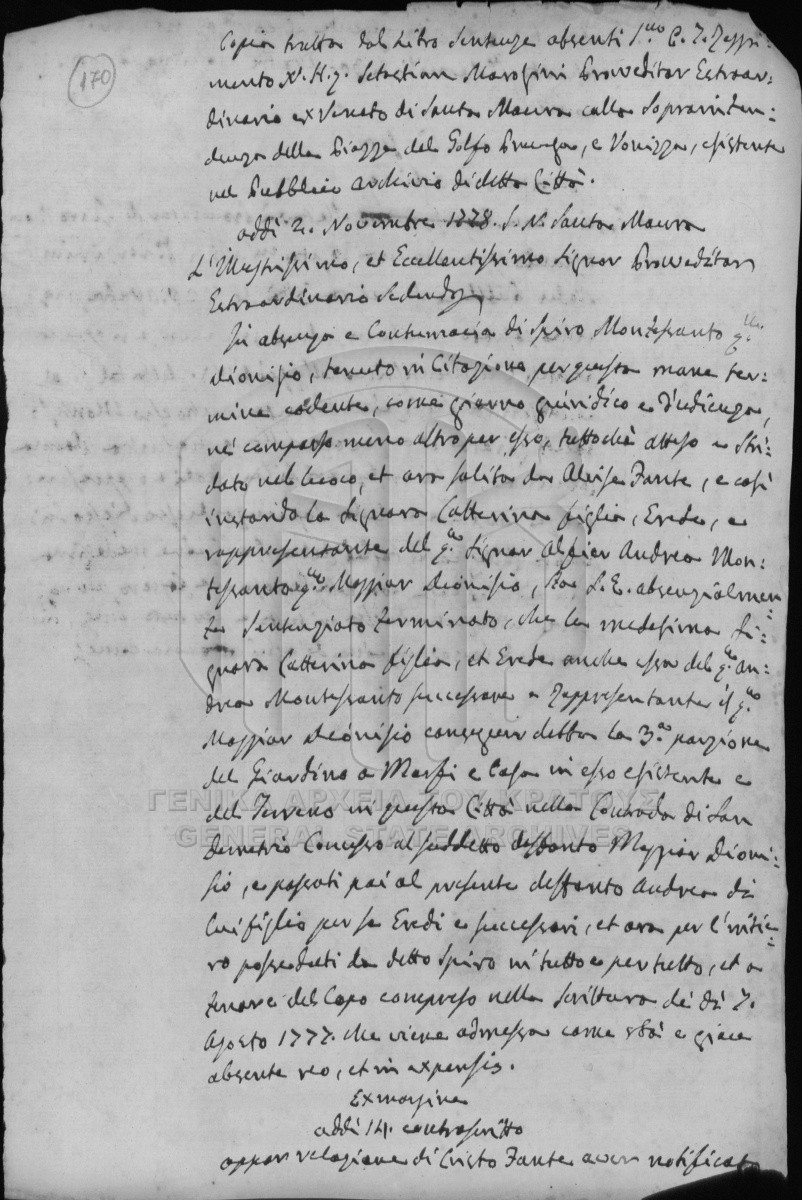 170
Copia tratta dal Libro Sentenze absenti P.mo C. T. Reggi-
mento N. H. z. Sebastian Marosini Proveditor Estraor-
dinario ex Veneto di Santa Maura colla Sopraniten-
denza della Piazza del Golfo Prevesa, e Vonizza, esistente
nel Pubblico Archivio di detta Città.
addì 2. Novembre 1778. S. N. Santa Maura
L'Illustrissimo, et Eccellentissimo Signor Proveditor
Estraordinario Sedendo
In absenza e Contumacia di Spiro Montessanto q.m
Dionisio, tenuto in Citazione per questa mane ter-
mine cadente, come giorno giuridico e d'udienza,
nè comparso meno altro per esso, tuttochè atteso e Stri-
dato nel luoco, et ora solita da Aloise Fante, e così
instando la Signora Catterina figlia, Erede, e
rappresentante del q.m Signor Alfier Andrea Mon-
tessanto q.m Maggior Dionisio, S. E. absenzialmen-
te Sentenziato terminato, che la medesima Si-
gnora Catterina figlia, et Erede anche essa del q.m An-
drea Montessanto successore e Rappresentante il q.m
Maggior Dionisio conseguir debba la 3.a porzione
del Giardino a Marfi e Casa in esso esistente e
del Terreno in questa Città nella Contrada di San
Demetrio Concesso al suddetto deffonto Maggior Dioni-
sio, e passati poi al presente deffonto Andrea di
Cui figlio per se Eredi e successori, et ora per l'intie-
ro posseduti da detto Spiro in tutto e per tutto, et a
tenore del Capo compreso nella Scrittura de dì 7.
Agosto 1777. che viene admessa come stà e giace
absente reo, et in expensis.
Ex margine
addì 14. contrascritto
appar relazione di Cristo Fante aver notificato
ΓΕΝΙΚΑ ΑΡΧΕΙΑ ΤΟΥ ΚΡΑΤΟΥΣ
GENERAL STATE ARCHIVES